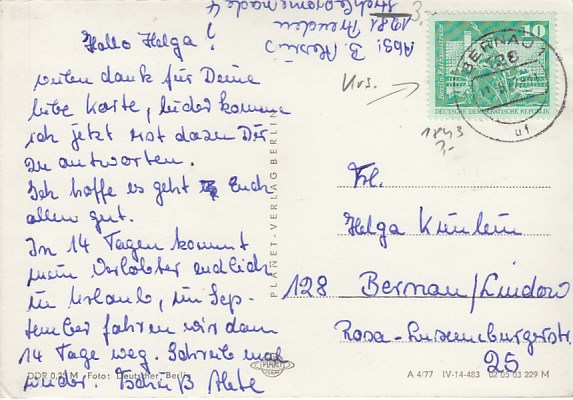 Hallo Helga!
vielen Dank für Deine
liebe Karte, leider komme
ich jetzt erst dazu Dir
zu antworten.
Ich hoffe es geht Euch
allen gut.
In 14 Tagen kommt
mein Verlobter endlich
in Urlaub, im Sep-
tember fahren wir dann
14 Tage weg. Schreib mal
wieder. Tschüß
Abs: B.
3,-
Urs.
1843
10
Berlin-Rathausstraße
DEUTSCHE DEMOKRATISCHE REPUBLIK
BERNAU
128
uf
PLANET-VERLAG BERLIN
Frl.
Helga
128 Bernau/Lindow
Rosa-Luxemburgstr.
25
DDR 0,25 M Foto: Deutscher, Berlin
A 4/77 IV-14-483 02 05 03 229 M